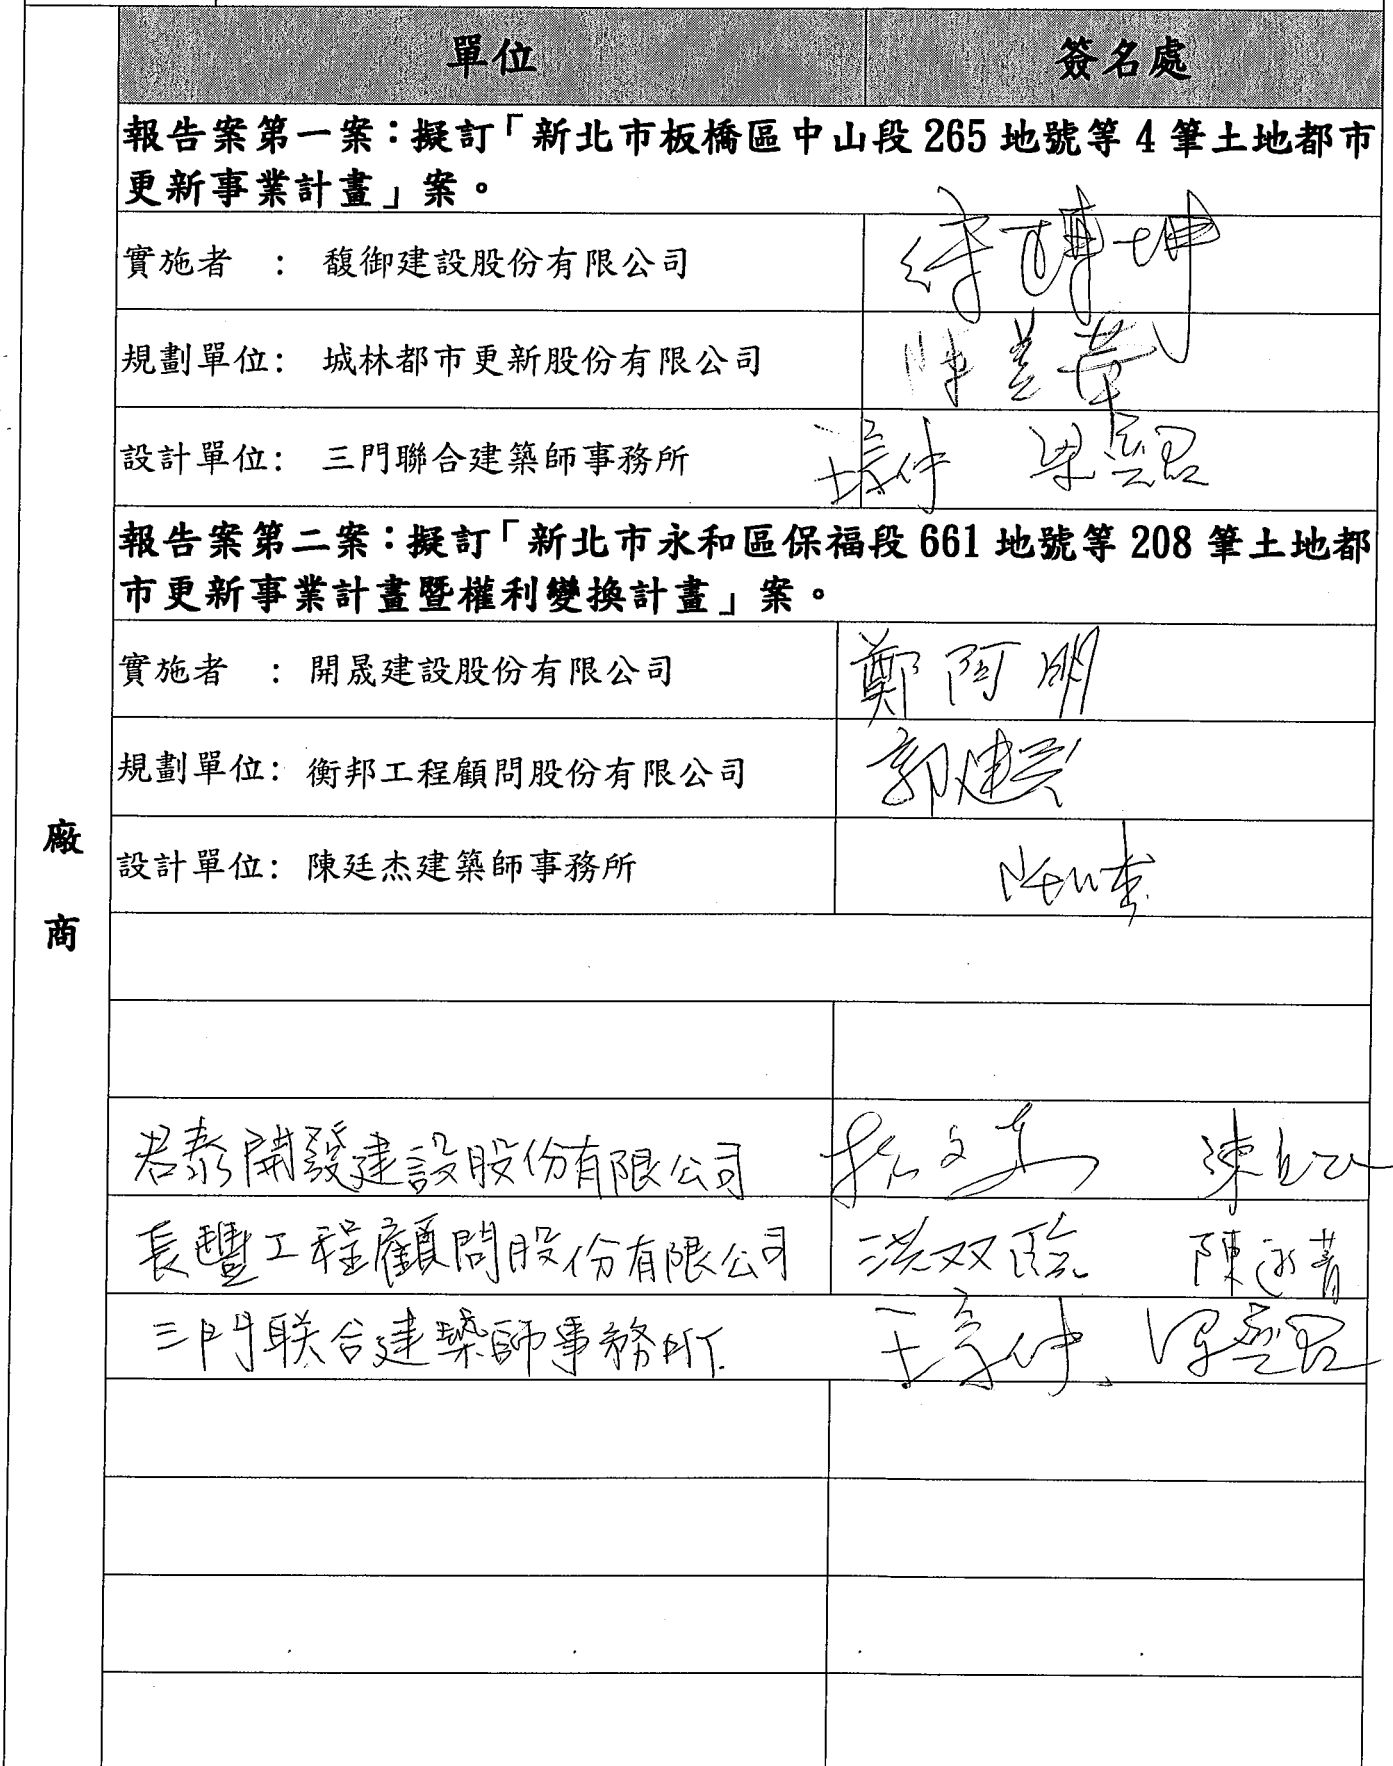 單位 簽名處
報告案第一案：擬訂「新北市板橋區中山段 265 地號等 4 筆土地都市
更新事業計畫」案。
實施者 : 馥御建設股份有限公司
規劃單位: 城林都市更新股份有限公司
設計單位: 三門聯合建築師事務所
報告案第二案：擬訂「新北市永和區保福段 661 地號等 208 筆土地都
市更新事業計畫暨權利變換計畫」案。
實施者 : 開晟建設股份有限公司 鄭阿明
規劃單位: 衡邦工程顧問股份有限公司 郭建
廠
商
設計單位: 陳廷杰建築師事務所
君泰開發建設股份有限公司
長豐工程顧問股份有限公司 洪双
三門联合建築師事務所